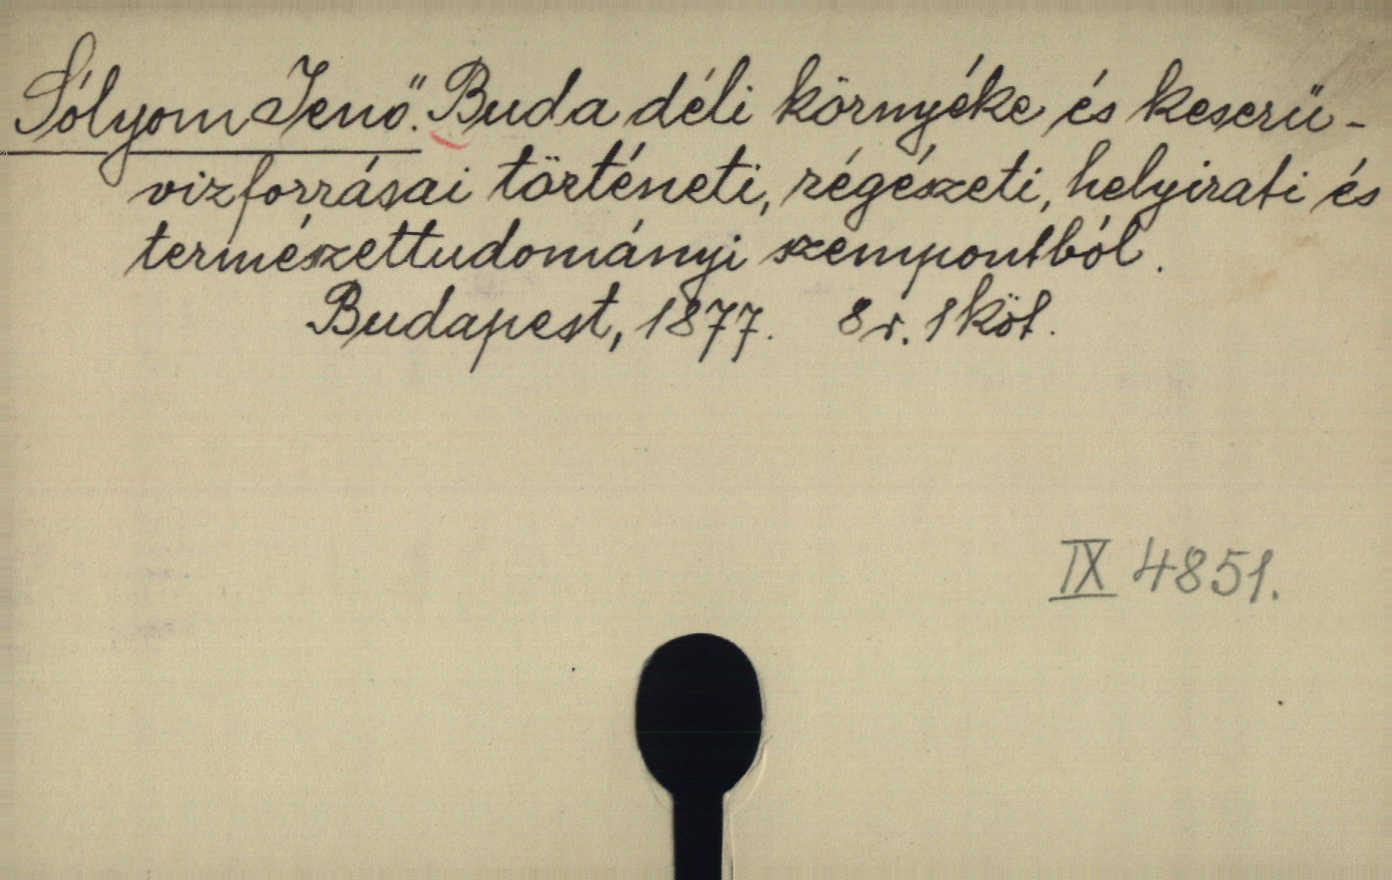 Sólyom Jenő. Buda déli környéke és keserü-
vizforrásai történeti, régészeti, helyirati és
természettudományi szempontból.
Budapest, 1877. 8r. 1 köt.
IX 4851.